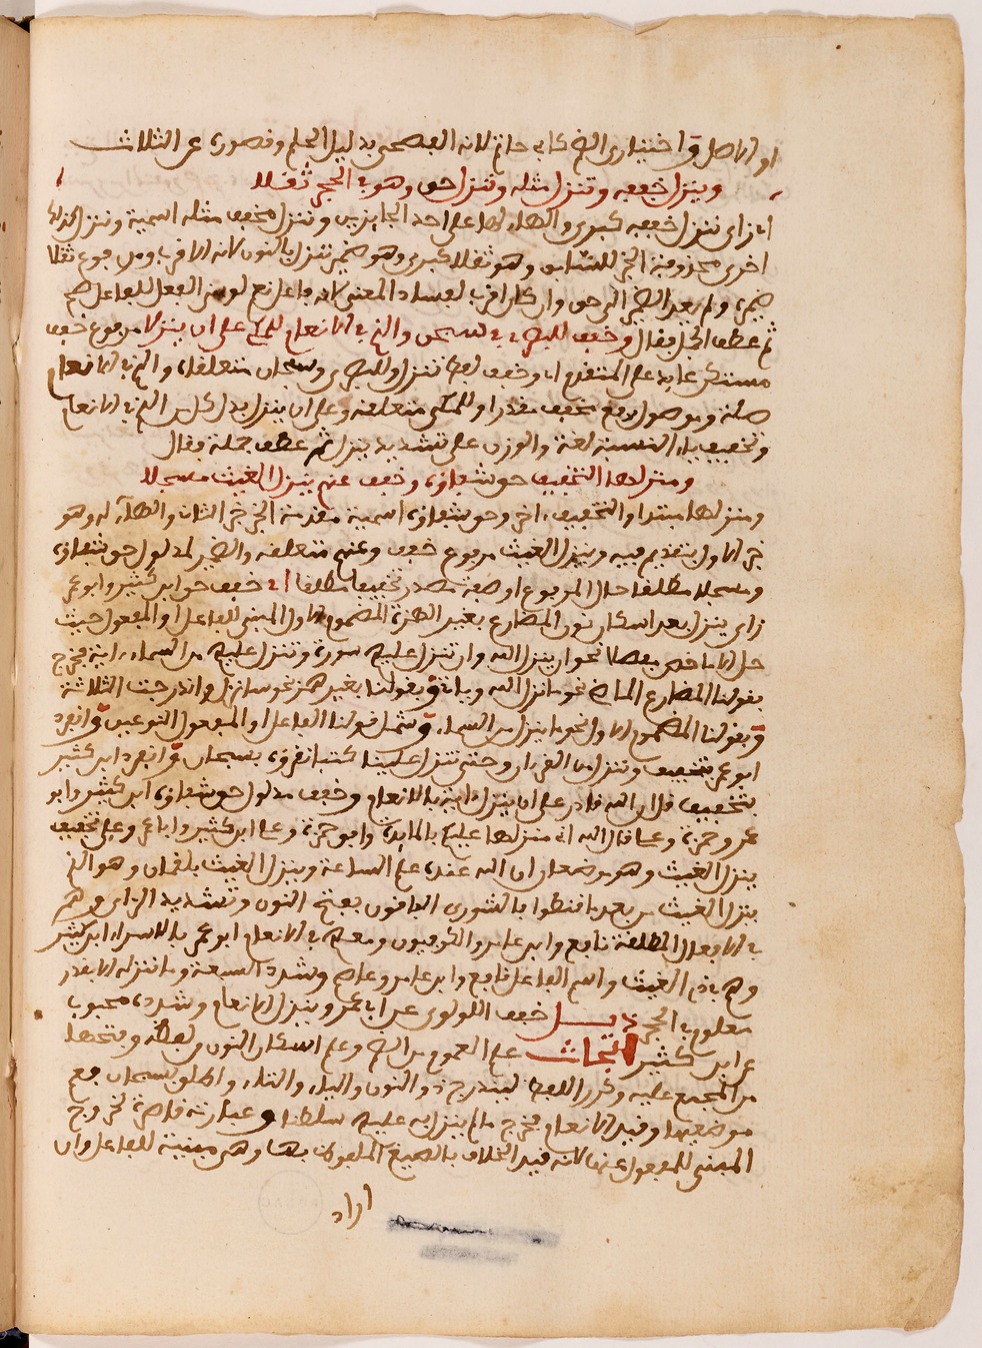 او الاصل واختياري الضم كابي حاتم لانه الفصحى بدليل الحلم وقصوره عن الثلاث
وينزل خففه وتنزل مثله وننزل حق وهو في الحجر ثقلا
اي زاي ننزل خففه كبرى والهاء لها على احد الجايزين وتنزل مخفف مثله اسمية وننزل كذلك
اخرى محذوفة الخبر للسابق وهو ثقلا كبرى وهو ضمير ننزل بالنون لانه الاقرب ومرفوع ثقلا
ضميره ولم يعد الضمير الى حق وان كان اقرب لفساد المعنى
ثم عطف فقال وخفف للبصري بسبحان والذي في الانعام للمكي على ان ينزلا مرفوع خفف
مستكن عايد على المتقدم اي وخفف لفظ ننزل وللبصري وسبحان متعلقاه والذي في الانعام
صلة وموصول رفع بخفف مقدرا وللمكي متعلقه وعلى ان ينزل بدل كل من الذي في الانعام
وتخفيف ياء النسبة لغة والوزن على تشديد ينزل ثم عطف جملة فقال
ومنزلها التخفيف حق شفاؤه وخفف عنهم ينزل الغيث مسجلا
ومنزلها مبتدا والتخفيف اخر وحق شفاؤه اسمية مقدمة الخبر خبر الثاني والهاء له وهو
خبر الاول بتقديم فيه وينزل الغيث مرفوع خفف وعنهم متعلقه والضمير لمدلول حق شفاؤه
ومسجلا مطلقا حال المرفوع او صفة مصدر تخفيفا مطلقا اي خفف حق ابن كثير وابو عمرو
زاي ينزل بعد اسكان نون المضارع بغير الهمزة المضموم الاول المبني للفاعل او المفعول حيث
حل الا ما خص مفصلا نحو ان ينزل الله وان تنزل عليهم سورة وننزل عليهم من السماء اية فخرج
بقولنا المضارع الماضي نحو ما نزل الله وبقولنا بغير همز نحو سانزل واندرجت الثلاثة
وبقولنا المضموم الاول نحو ما ينزل من السماء وشمل قولنا الفاعل او المفعول النوعين وانفرد
ابو عمرو بتخفيف وننزل من القران وحتى تنزل علينا كتابا نقرؤه بسبحان وانفرد ابن كثير
بتخفيف قل ان الله قادر على ان ينزل اية بالانعام وخفف مدلول حق شفاؤه ابن كثير وابو
عمرو وحمزة وعلي قال الله اني منزلها عليكم بالمايدة وابو حمزة وعلي ابن كثير وابا عمرو على تخفيف
ينزل الغيث وهو موضعان ان الله عنده علم الساعة وينزل الغيث بلقمان وهو الذي
ينزل الغيث من بعد ما قنطوا بالشورى الباقون بفتح النون وتشديد الزاي وهم
في الافعال المطلقة نافع وابن عامر والكوفيون ومعهم في الانعام ابو عمرو بالاسراء ابن كثير
وهم في الغيث واسم الفاعل نافع وابن عامر وعاصم وشدد السبعة وما ننزله الا بقدر
معلوم في الحجر ذيل خفف اللولوي عن ابي عمرو وينزل الانعام وشدده محبوب
عن ابن كثير ابحاث علم العموم من الضم وعلم اسكان النون من لفظه وفتحها
من المجمع عليه وكرر اللفظ ليندرج ذو النون والياء والتاء واطلق بسبحان فعم
موضعيها وقيد الانعام فخرج ما لم ينزل به عليكم سلطانا وعبارته قاصرة لخروج
المبني للمفعول عنها لانه قيد الخلاف بالصيغ الملفوظ بها وهي مبنية للفاعل وان
اراد